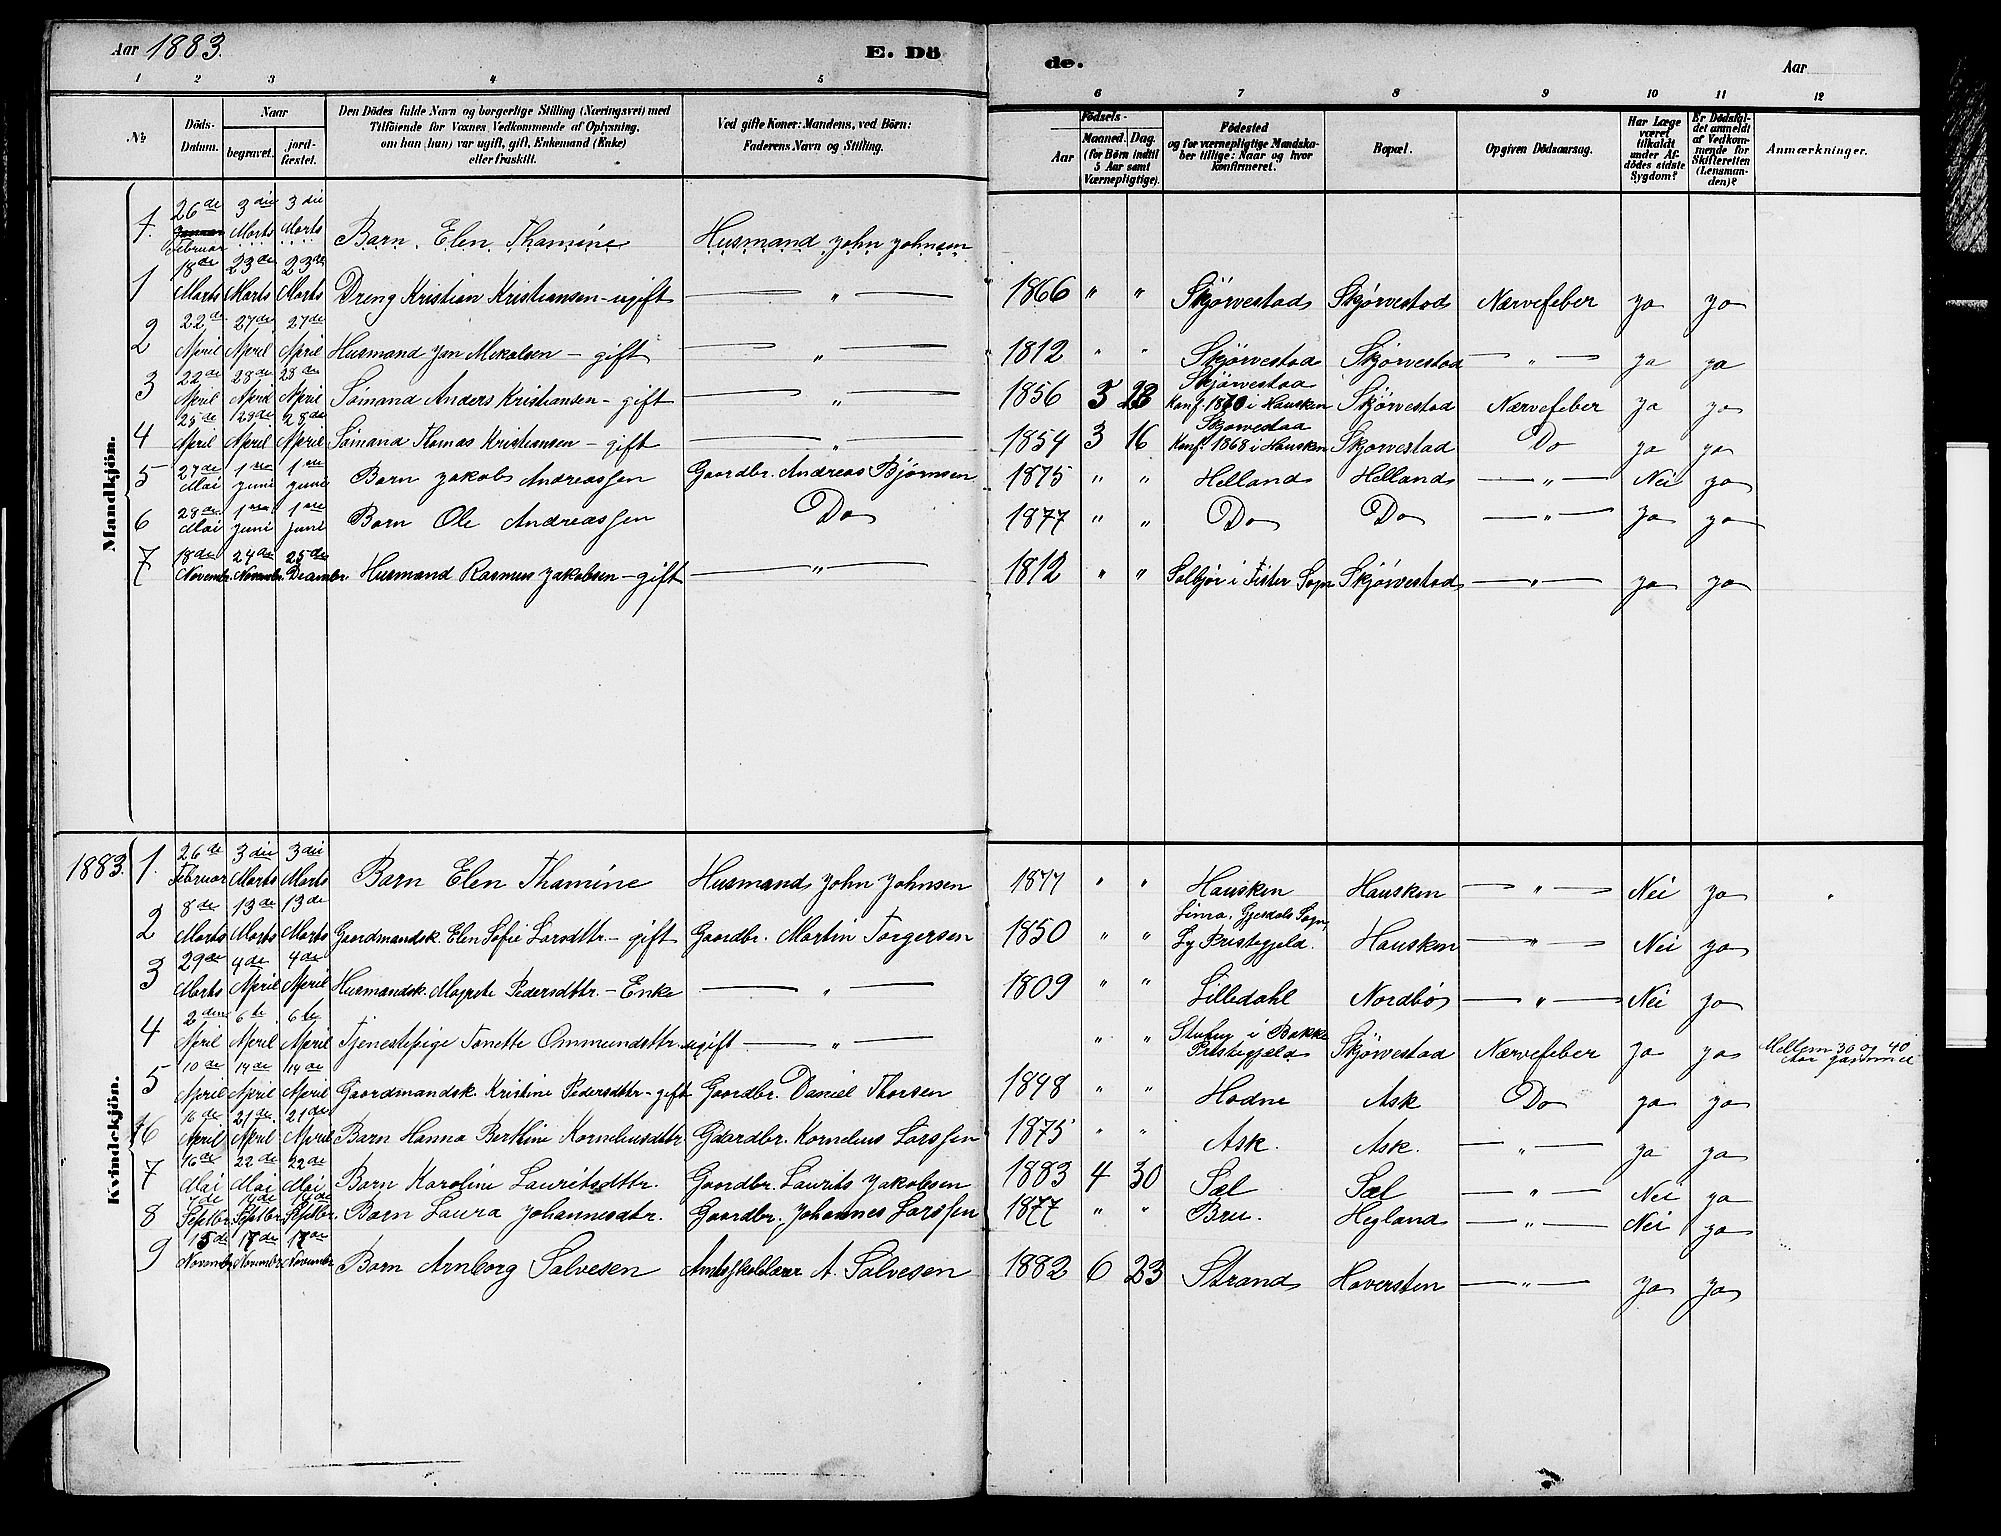 Aar 1883.
E. Dö
de.
Aar
1 2 3 4 5 6 7 8 9 10 11 12
№
Döds-Datum.
Naar
begravet.
jordfæstet.
Den Dödes fulde Navn og borgerlige Stilling (Næringsvei) med
Tilföiende for Voxnes Vedkommende af Oplysning,
om han (hun) var ugift, gift, Enkemand (Enke)
eller fraskilt.
Ved gifte Koner: Mandens, ved Börn:
Faderens Navn og Stilling.
Födsels-
Aar
Maaned. Dag.
(for Börn indtil
5 Aar samt
Værnepligtige).
Födested
og for værnepligtige Mandska-
ber tillige: Naar og hvor
konfirmeret.
Bopæl.
Opgiven Dödsaarsag.
Har Læge
været
tilkaldt
under Af-
dödes sidste
Sygdom?
Er Dödsfal-
det anmeldt
af Vedkom-
mende for
Skifteretten
(Lensman-
den)?
Anmærkninger.
Mandkjön.
1. 26de Februar 3die Marts 3die Marts Barn Elen Thamine Husmand John Johnsen
1 18de Marts 23de Marts 23de Marts Dreng Kristian Kristiansen - ugift — „ — 1866 „ „ Skjørvestad Skjørvestad Nærvefeber ja ja
2 22de April 27de April 27de April Husmand Jan Mikalsen - gift — „ — 1812 „ „ Skjørvestad Skjørvestad — „ — ja ja
3 22de April 28de April 28de April Sømand Anders Kristiansen - gift — „ — 1856 3 28 Skjørvestad Konf. 1870 i Hausken Skjørvestad Nærvefeber ja ja
4 25de April 28de April 28de April Sømand Thomas Kristiansen - gift — „ — 1854 3 16 Skjørvestad Konf. 1868 i Hausken Skjørvestad Do ja ja
5 27de Mai 1ste Juni 1ste Juni Barn Jakob Andreassen Gaardbr. Andreas Bjørnsen 1875 „ „ Helland Helland — „ — Nei ja
6 28de Mai 1ste Juni 1ste Juni Barn Ole Andreassen Do 1877 „ „ Do Do — „ — ja ja
7 18de Novembr. 24de Novmbr. 25de Decmbr. Husmand Rasmus Jakobsen - gift — „ — 1812 „ „ Solbjør i Fister Sogn Skjørvestad — „ — ja ja
Kvindekjön.
1883. 1. 26de Februar 3die Marts 3die Marts Barn Elen Thamine Husmand John Johnsen 1877 „ „ Hausken Hausken — „ — Nei ja
2 8de Marts 13de Marts 13de Marts Gaardmandsk. Elen Sofie Larsdttr. - gift Gaardbr. Martin Torgersen 1850 „ „ Lima, Gjesdals Sogn, Ly Prestegjeld. Hausken — „ — Nei ja
3 29de Marts 4de April 4de April Husmandsk. Magrete Pedersdttr. - Enke — „ — 1809 „ „ Lilledahl Nordbø — „ — Nei ja
4 2den April 6te April 6te April Tjenestepige Tonette Ommundsttr. ugift — „ — „ „ i Bakke Prestegjeld Skjørvestad Nærvefeber ja ja Mellem 30 og 40 Aar
5 10de April 14de April 14de April Gaardmandsk. Kristine Pedersdttr - gift Gaardbr. Daniel Thorsen 1848 „ „ Hodne Ask Do ja ja
6 16de April 21de April 21de April Barn Hanna Berthine Korneliusdttr. Gaardbr. Kornelius Larssen 1875 „ „ Ask. Ask. — „ — ja ja
7 16de Mai 22de Mai 22de Mai Barn Karoline Lauritsdttr. Gaardbr. Laurits Jakobsen 1883 4 30 Sæl Sæl — „ — Nei ja
8 Septbr. 14de Septbr. 14de Septbr. Barn Laura Johannesdtr. Gaardbr. Johannes Larssen 1877 „ „ Bru. Heyland — „ — Nei ja
9 15de Novembr 17de Novembr 17de Novembr Barn Arnborg Salvesen Amtsskolelærer A. Salvesen 1882 6 23 Strand Haversten — „ — ja ja